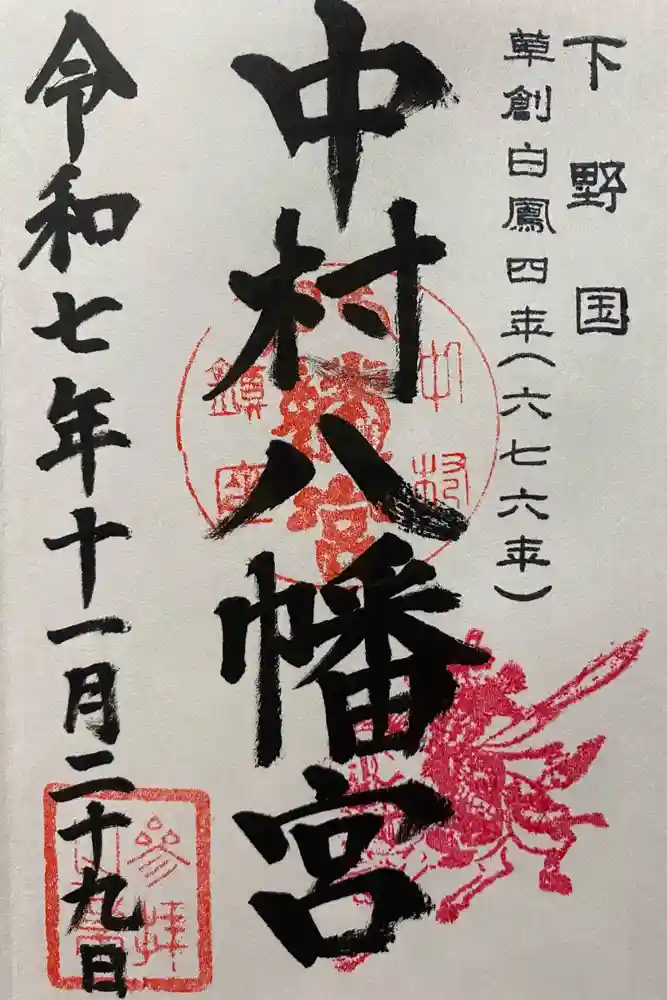 下野国
草創白鳳四年(六七六年)
中村八幡宮
中村
鎮座
八幡宮
令和七年十一月二十九日
参拝